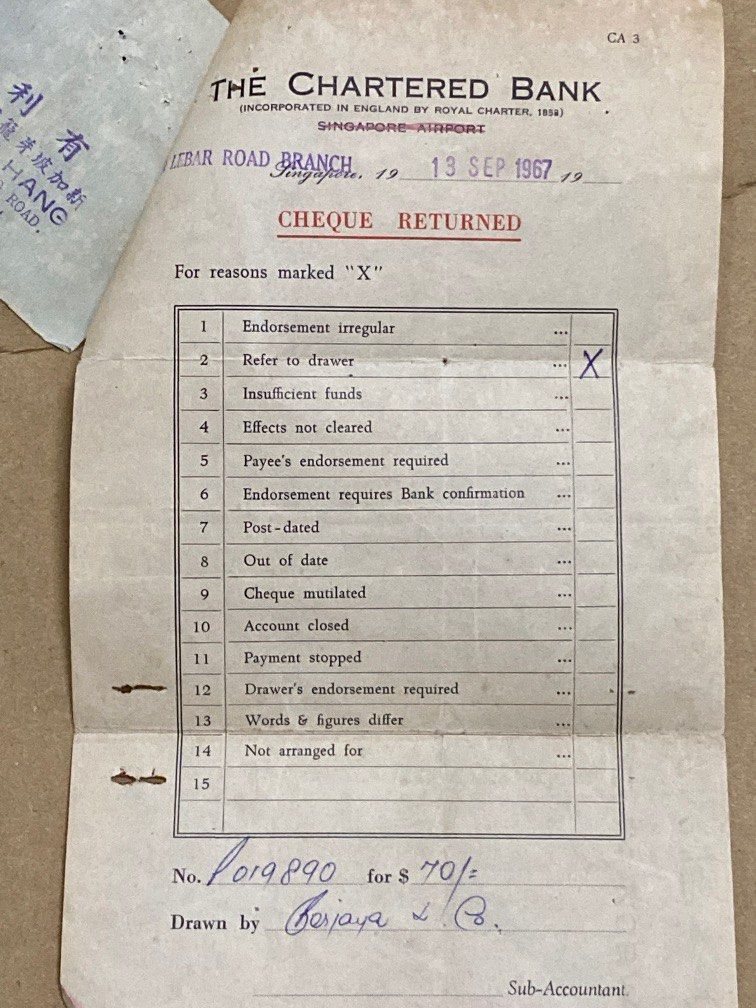 CA 3
THE CHARTERED BANK
(INCORPORATED IN ENGLAND BY ROYAL CHARTER, 1853)
SINGAPORE AIRPORT
LEBAR ROAD BRANCH
Singapore, 19 13 SEP 1967 19
CHEQUE RETURNED
For reasons marked "X"
1 Endorsement irregular ...
2 Refer to drawer ... X
3 Insufficient funds ...
4 Effects not cleared ...
5 Payee's endorsement required ...
6 Endorsement requires Bank confirmation ...
7 Post-dated ...
8 Out of date ...
9 Cheque mutilated ...
10 Account closed ...
11 Payment stopped ...
12 Drawer's endorsement required ...
13 Words & figures differ ...
14 Not arranged for ...
15
No. P019890 for $ 70/=
Drawn by Berjaya & Co.
Sub-Accountant.
利有
芽波加新
HANG
ROAD.